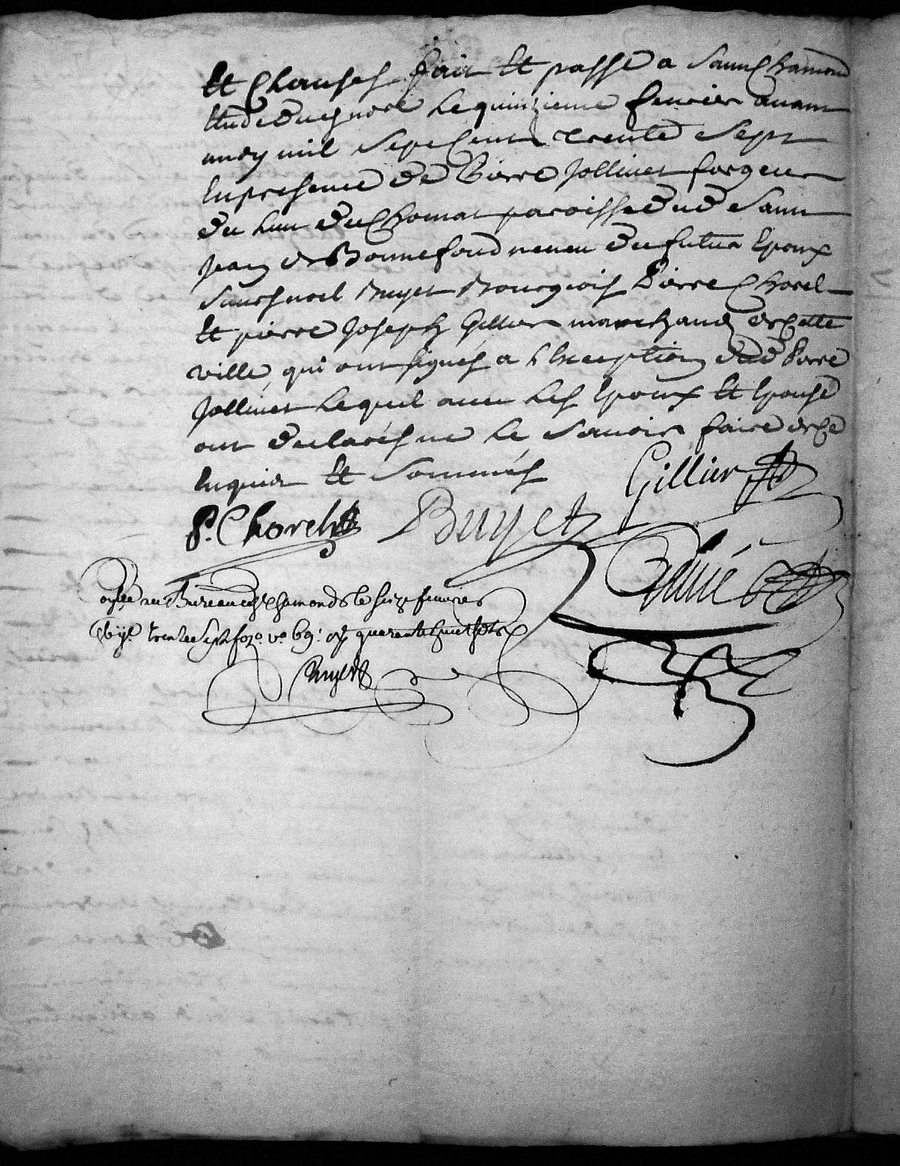 et clauses fait et passé a Saint Chamond
étude du no.re le quinzieme fevrier avant
midy mil sept Cent trente Sept
En presence de Pierre Jollivet forgeur
du lieu du Chomat paroisse dud Saint
Jean de Bonnefond neveu du futur Epoux
Buyet Bourgeois Pierre Chorel
et pierre Joseph Gillier marchand de Cette
ville qui ont signés a l'Exception dud Pierre
Jollivet lequel avec les Epoux et Epouse
ont declarés ne le Savoir faire de Ce
Enquis et sommés
Gillier
P. Chorel
Buyet
au Bureau de St Chamond le Seize fevrier
trente Sept fo vo 69 quarente huit
Buyet